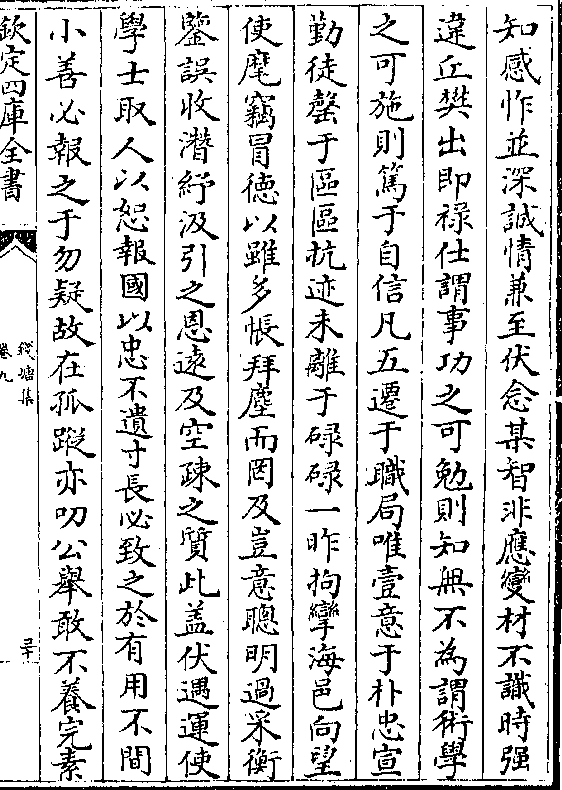 知感怍並深誠情兼至伏念某智非應變材不識時强
違丘樊出即祿仕謂事功之可勉則知無不為謂術學
之可施則篤于自信凡五遷于職局唯壹意于朴忠宣
勤徒罄于區區抗迹未離于碌碌一昨拘攣海邑向望
使麾竊冒德以雖多悵拜塵而罔及豈意聰明過采衡
鑒誤收潛紆汲引之恩遠及空疎之質此盖伏遇運使
學士取人以恕報國以忠不遺寸長必致之於有用不間
小善必報之于勿疑故在孤蹤亦叨公舉敢不養完素
欽定四庫全書
錢塘集
卷九